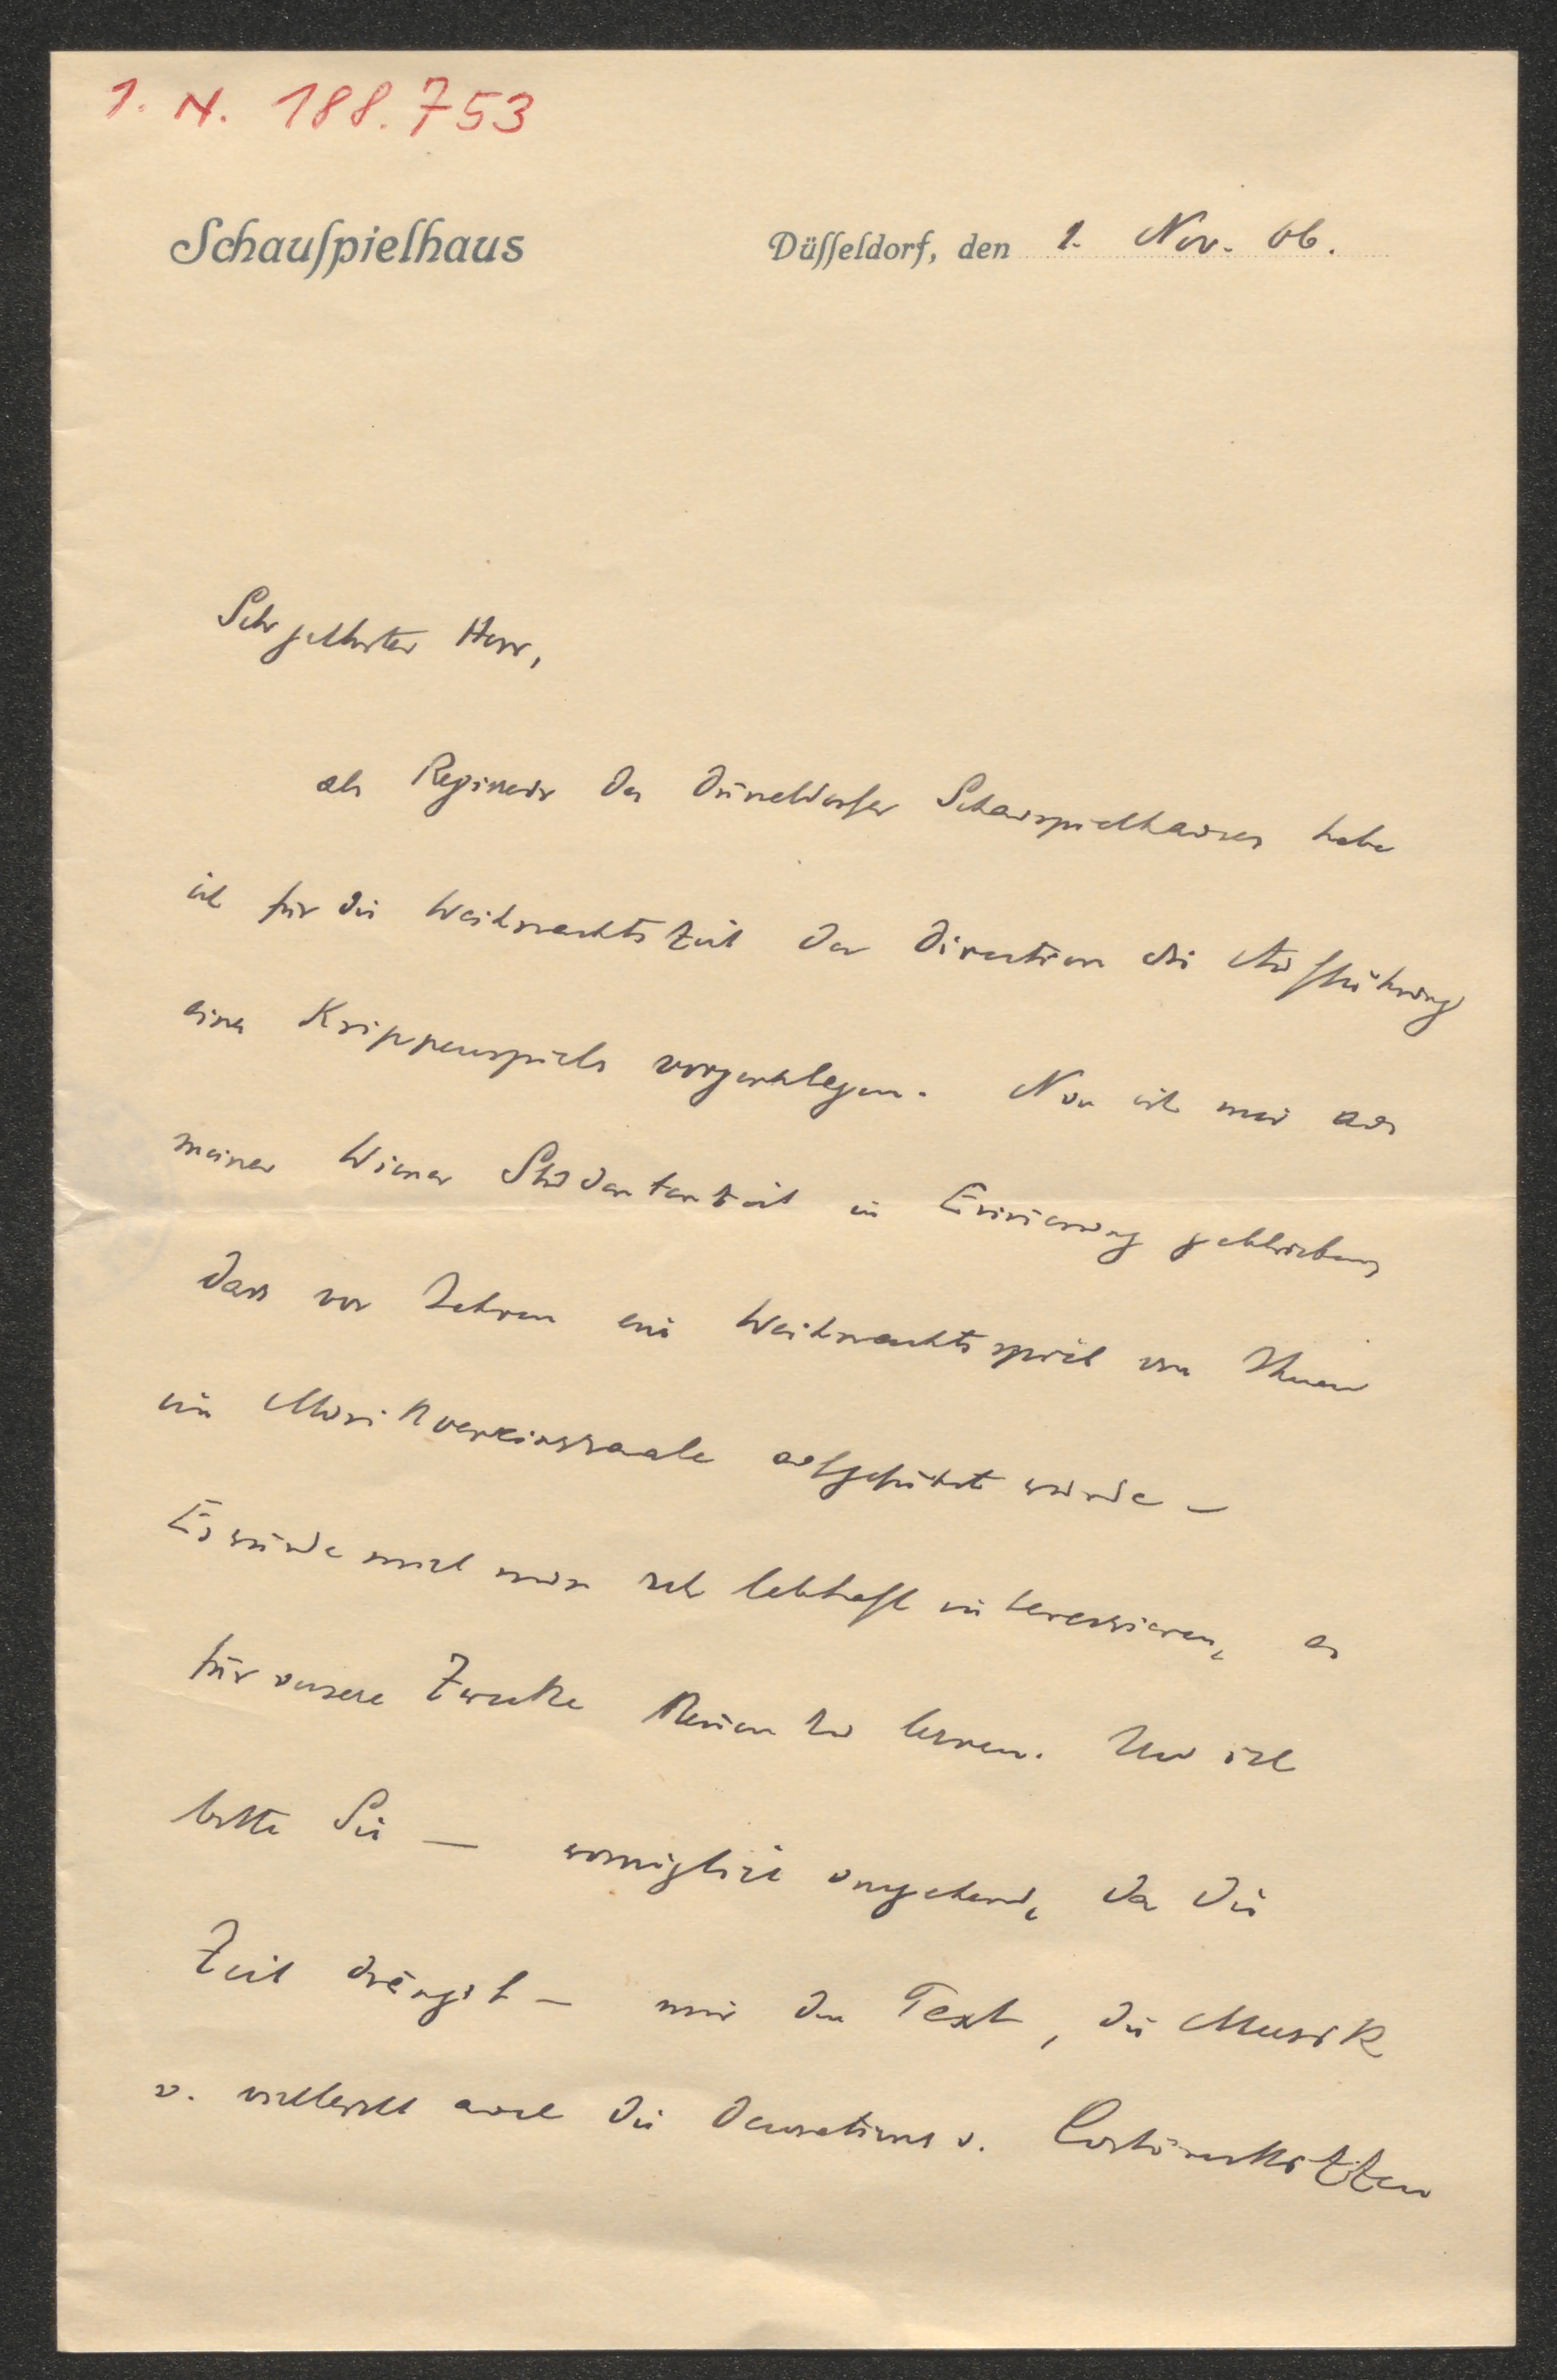 I. N. 188.753
Schauſpielhaus
Düſſeldorf, den 1. Nov. 06.
Sehr geehrter Herr,
als Regisseur des Düsseldorfer Schauspielhauses habe
ich für die Weihnachtszeit der Direction die Aufführung
eines Krippenspiels vorgeschlagen. Nun ist mir aus
meiner Wiener Studentenzeit in Erinnerung geblieben,
dass vor Jahren ein Weihnachtsspiel von Ihnen
im Musikvereinssaale aufgeführt wurde –
Es würde mich nun sehr lebhaft interessieren, es
für unsere Zwecke kennen zu lernen. Und ich
bitte Sie – womöglich umgehend, da die
Zeit drängt – mir den Text, die Musik
u. vielleicht auch die Decorations u. Costümskizzen